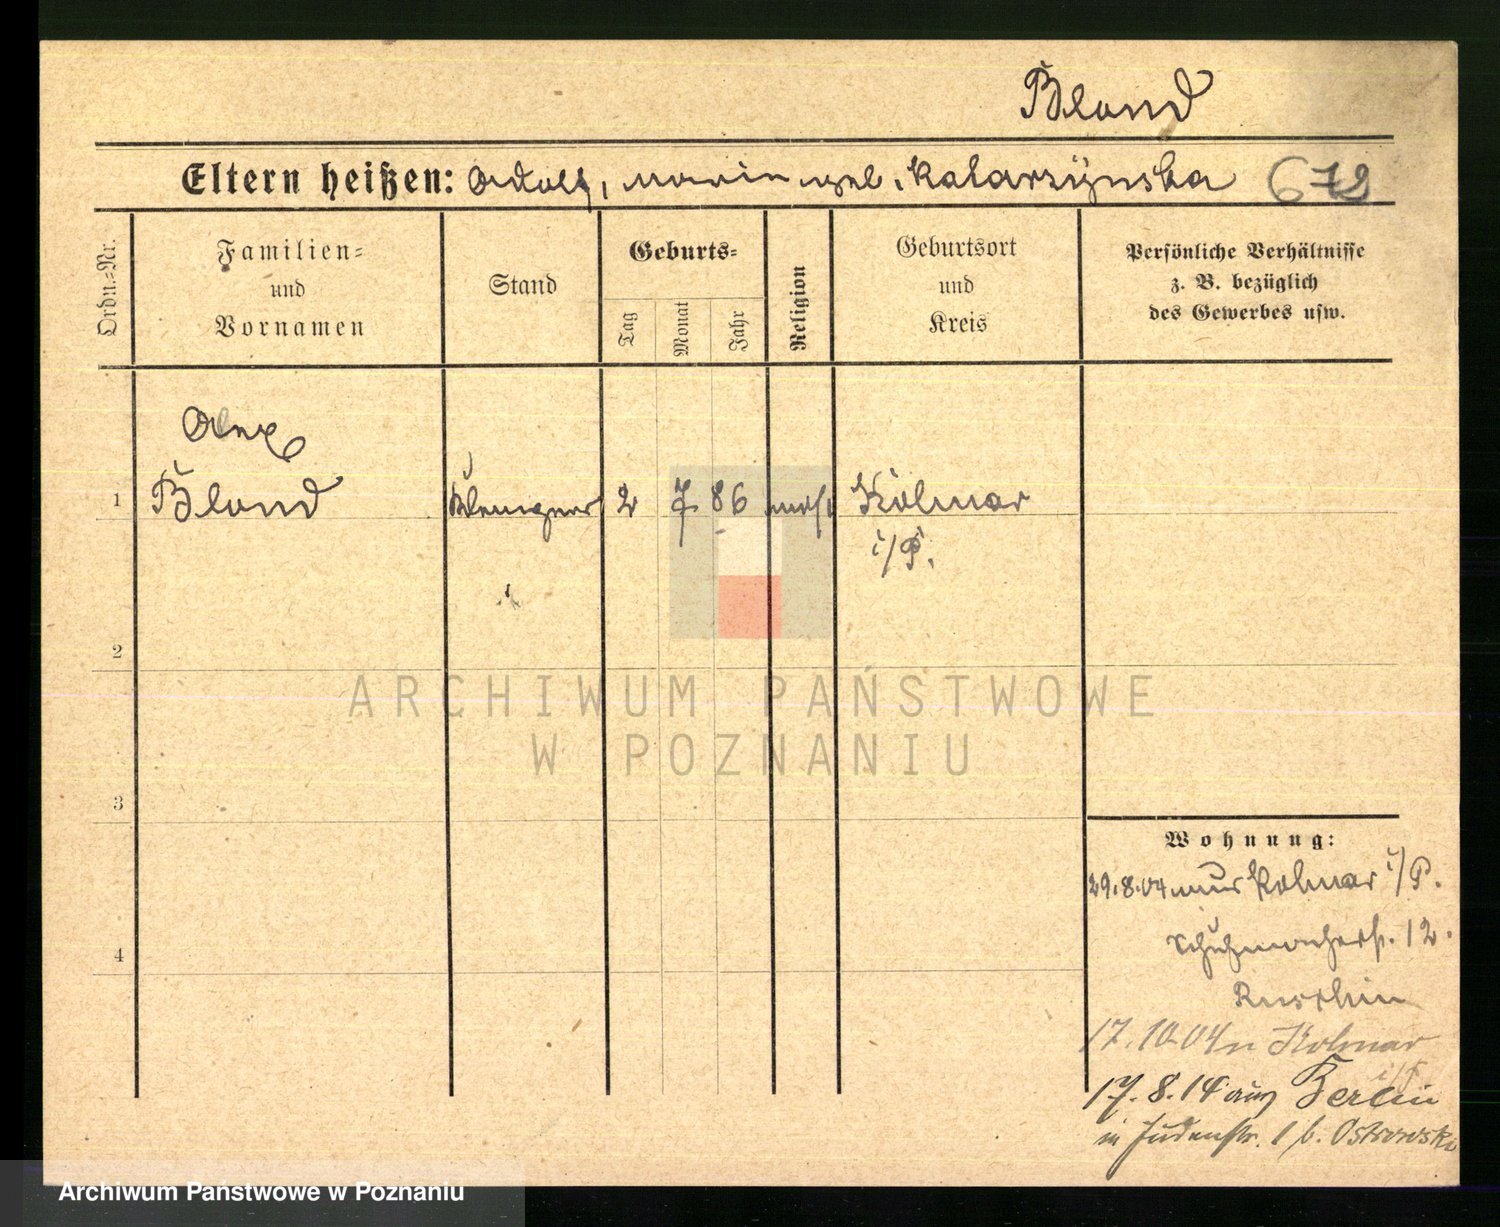 Blond
Eltern heißen: Adolf, Marie geb. Katarzynska 672
Ordn.=Nr.
Familien=
und
Vornamen
Stand
Geburts=
Tag
Monat
Jahr
Religion
Geburtsort
und
Kreis
Persönliche Verhältnisse
z. B. bezüglich
des Gewerbes usw.
Alex
1 Blond Klempner 2 7 86 mos. Kolmar
i/P.
2
3
4
Wohnung:
29.8.04 aus Kolmar i/P.
Schuhmacherstr. 12.
17.10.04 n Kolmar
i/P
17.8.14 aus Berlin
in Judenstr. 1 b. Ostrowski
ARCHIWUM PAŃSTWOWE
W POZNANIU
Archiwum Państwowe w Poznaniu